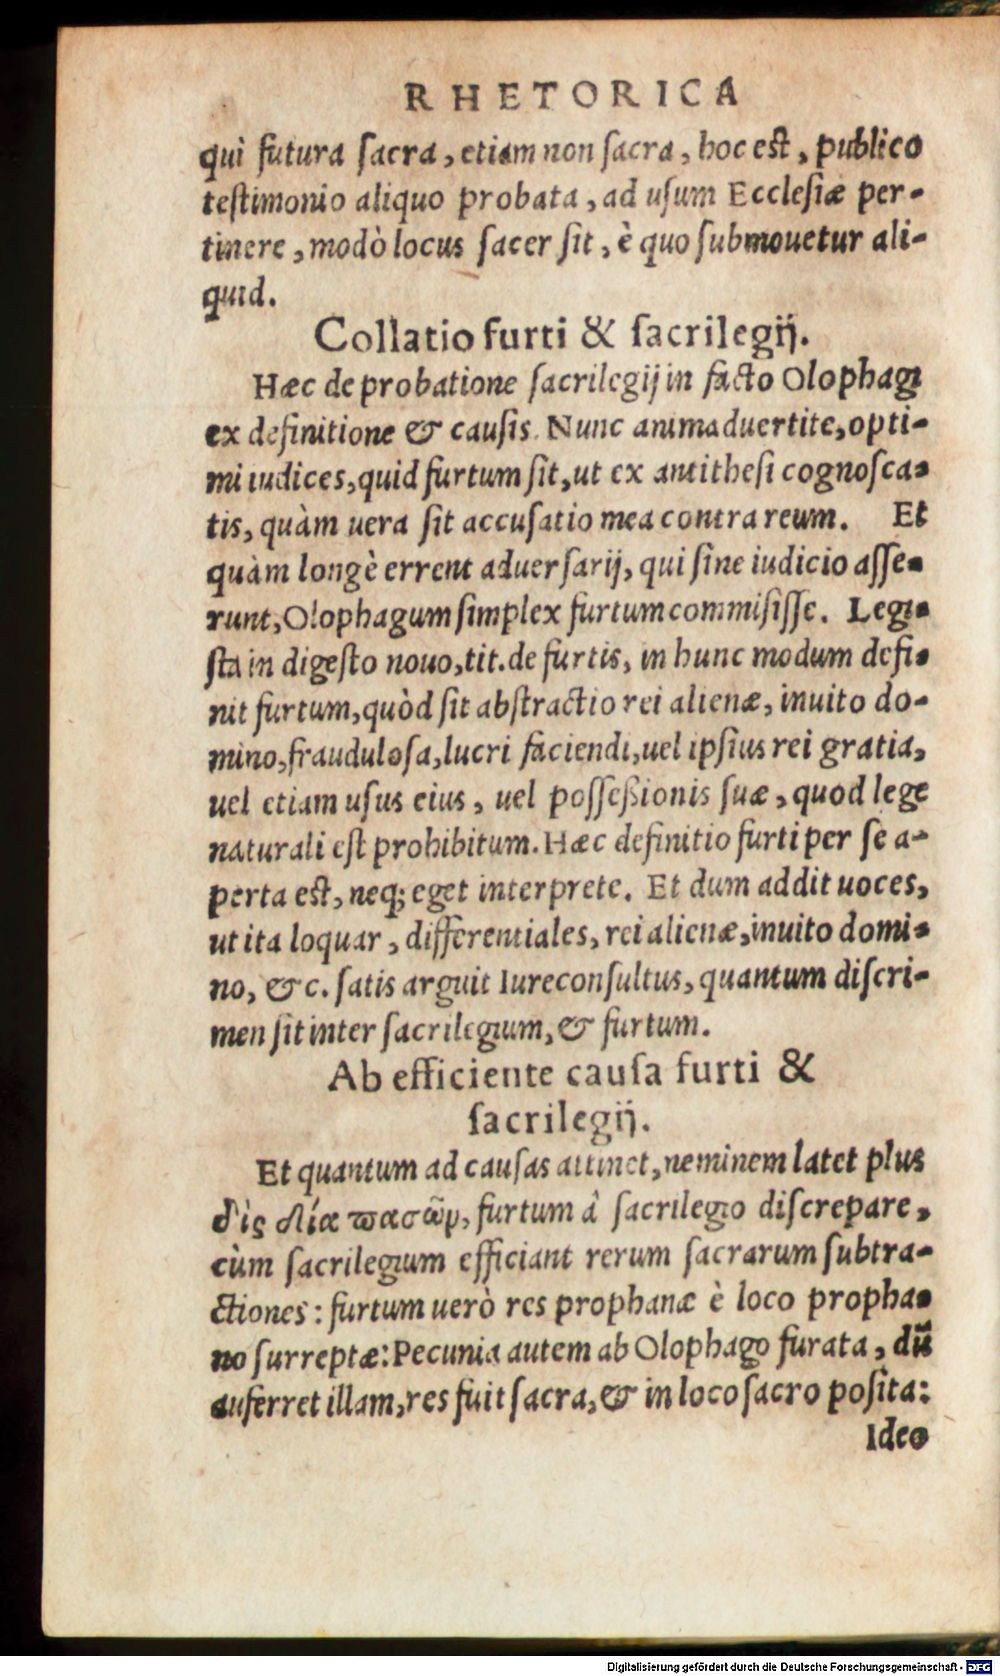 RHETORICA
qui futura ſacra, etiam non ſacra, hoc eſt, publico
teſtimonio aliquo probata, ad uſum Eccleſiæ per-
tinere, modò locus ſacer ſit, è quo ſubmouetur ali-
quid.
Collatio furti & ſacrilegij.
Hæc de probatione ſacrilegij in facto Olophagi
ex definitione & cauſis. Nunc animaduertite, opti-
mi iudices, quid furtum ſit, ut ex antitheſi cognoſca-
tis, quàm uera ſit accuſatio mea contra reum. Et
quàm longè errent aduerſarij, qui ſine iudicio aſſe-
runt, Olophagum ſimplex furtum commiſiſſe. Legi-
ſta in digeſto nouo, tit. de furtis, in hunc modum defi-
nit furtum, quòd ſit abſtractio rei alienæ, inuito do-
mino, frauduloſa, lucri faciendi, uel ipſius rei gratia,
uel etiam uſus eius, uel poſſeßionis ſuæ, quod lege
naturali eſt prohibitum. Hæc definitio furti per ſe a-
perta eſt, neq; eget interprete. Et dum addit uoces,
ut ita loquar, differentiales, rei alienæ, inuito domi-
no, &c. ſatis arguit Iureconſultus, quantum diſcri-
men ſit inter ſacrilegium, & furtum.
Ab efficiente cauſa furti &
ſacrilegij.
Et quantum ad cauſas attinet, neminem latet plus
δὶς δία πασῶν, furtum à ſacrilegio diſcrepare,
cùm ſacrilegium efficiant rerum ſacrarum ſubtra-
ctiones: furtum uerò res prophanæ è loco propha-
no ſurreptæ: Pecunia autem ab Olophago furata, dū
auferret illam, res fuit ſacra, & in loco ſacro poſita:
Ideo
Digitalisierung gefördert durch die Deutsche Forschungsgemeinschaft - DFG